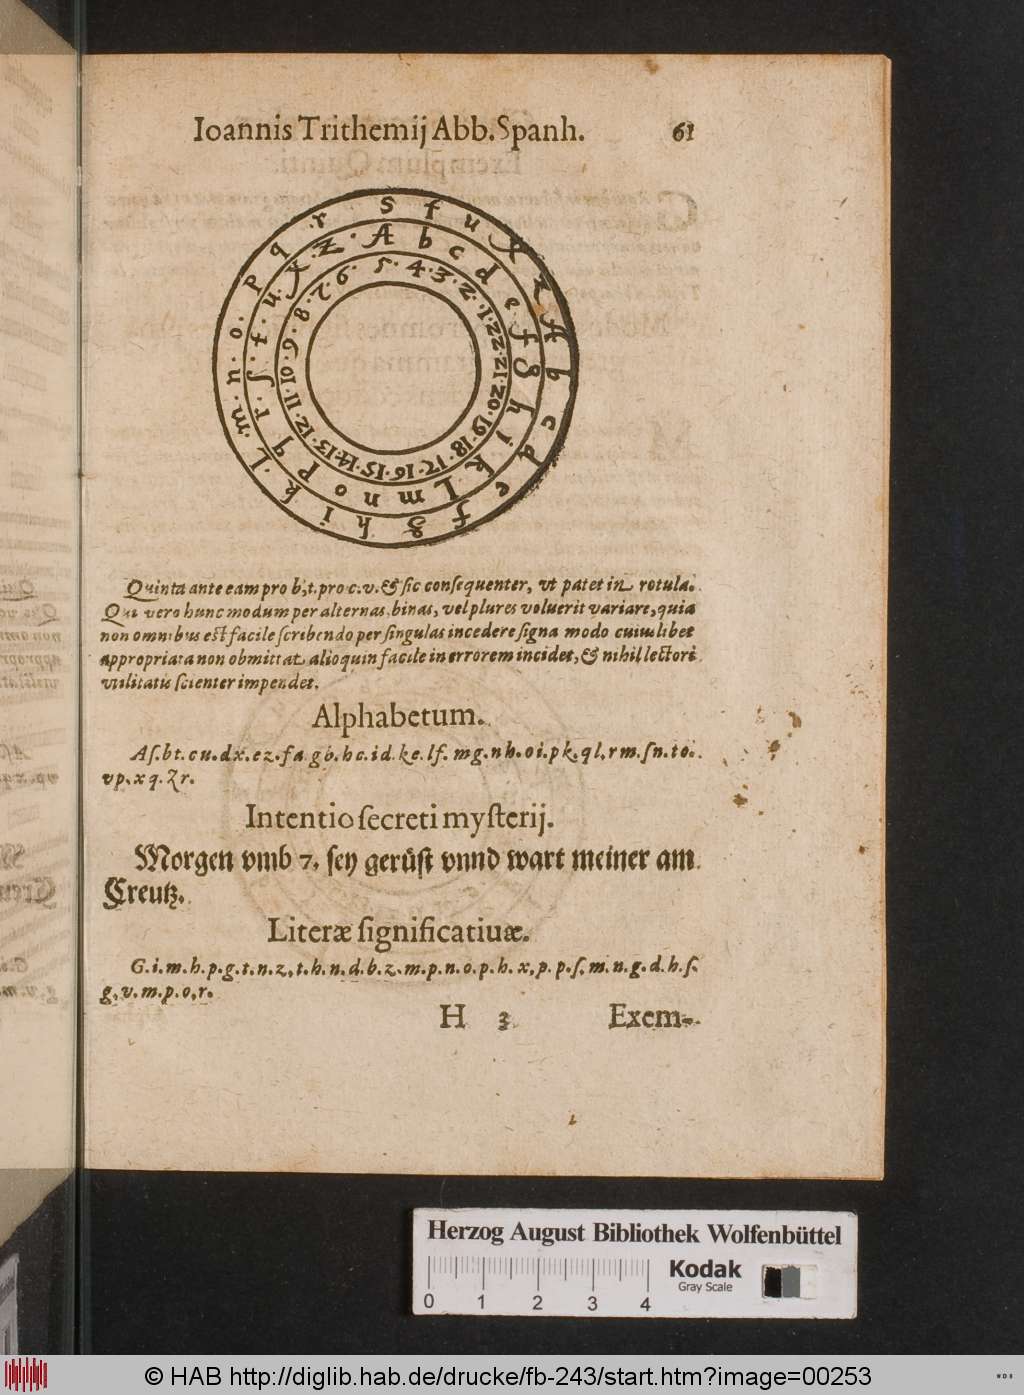 Ioannis Trithemij Abb. Spanh. 61
s t u x z A b c d e f g h i k L m n o p q r
A b c d e f g h i k L m n o p q r ſ t u x z
5 4 3 2 1 22 21 20 19 18 17 16 15 14 13 12 11 10 9 8 7 6
Quinta ante eam pro b, t. pro c. v. & ſic conſequenter, vt patet in rotula.
Qui vero hunc modum per alternas, binas, vel plures voluerit variare, quia
non omnibus eſt facile ſcribendo per ſingulas incedere ſigna modo cuiuslibet
appropriata non obmittat, alioquin facile in errorem incidet, & nihil lectori
vtilitatis ſcienter impendet.
Alphabetum.
Aſ. bt. cu. dx. ez. fa. gb. hc. id. ke. lf. mg. nh. oi. pk. ql, rm. ſn. to.
vp. xq. Zr.
Intentio ſecreti myſterij.
Morgen vmb 7. ſey gerüſt vnnd wart meiner am
Creutz.
Literæ ſignificatiuæ.
G. i. m. h. p. g. t. n. z, t. h. n. d. b. z. m. p. n. o. p. h. x, p. p. ſ. m. n. g. d. h. ſ.
g, v. m. p. o, r.
H 3 Exem-
Herzog August Bibliothek Wolfenbüttel
Kodak
Gray Scale
0 1 2 3 4
© HAB http://diglib.hab.de/drucke/fb-243/start.htm?image=00253